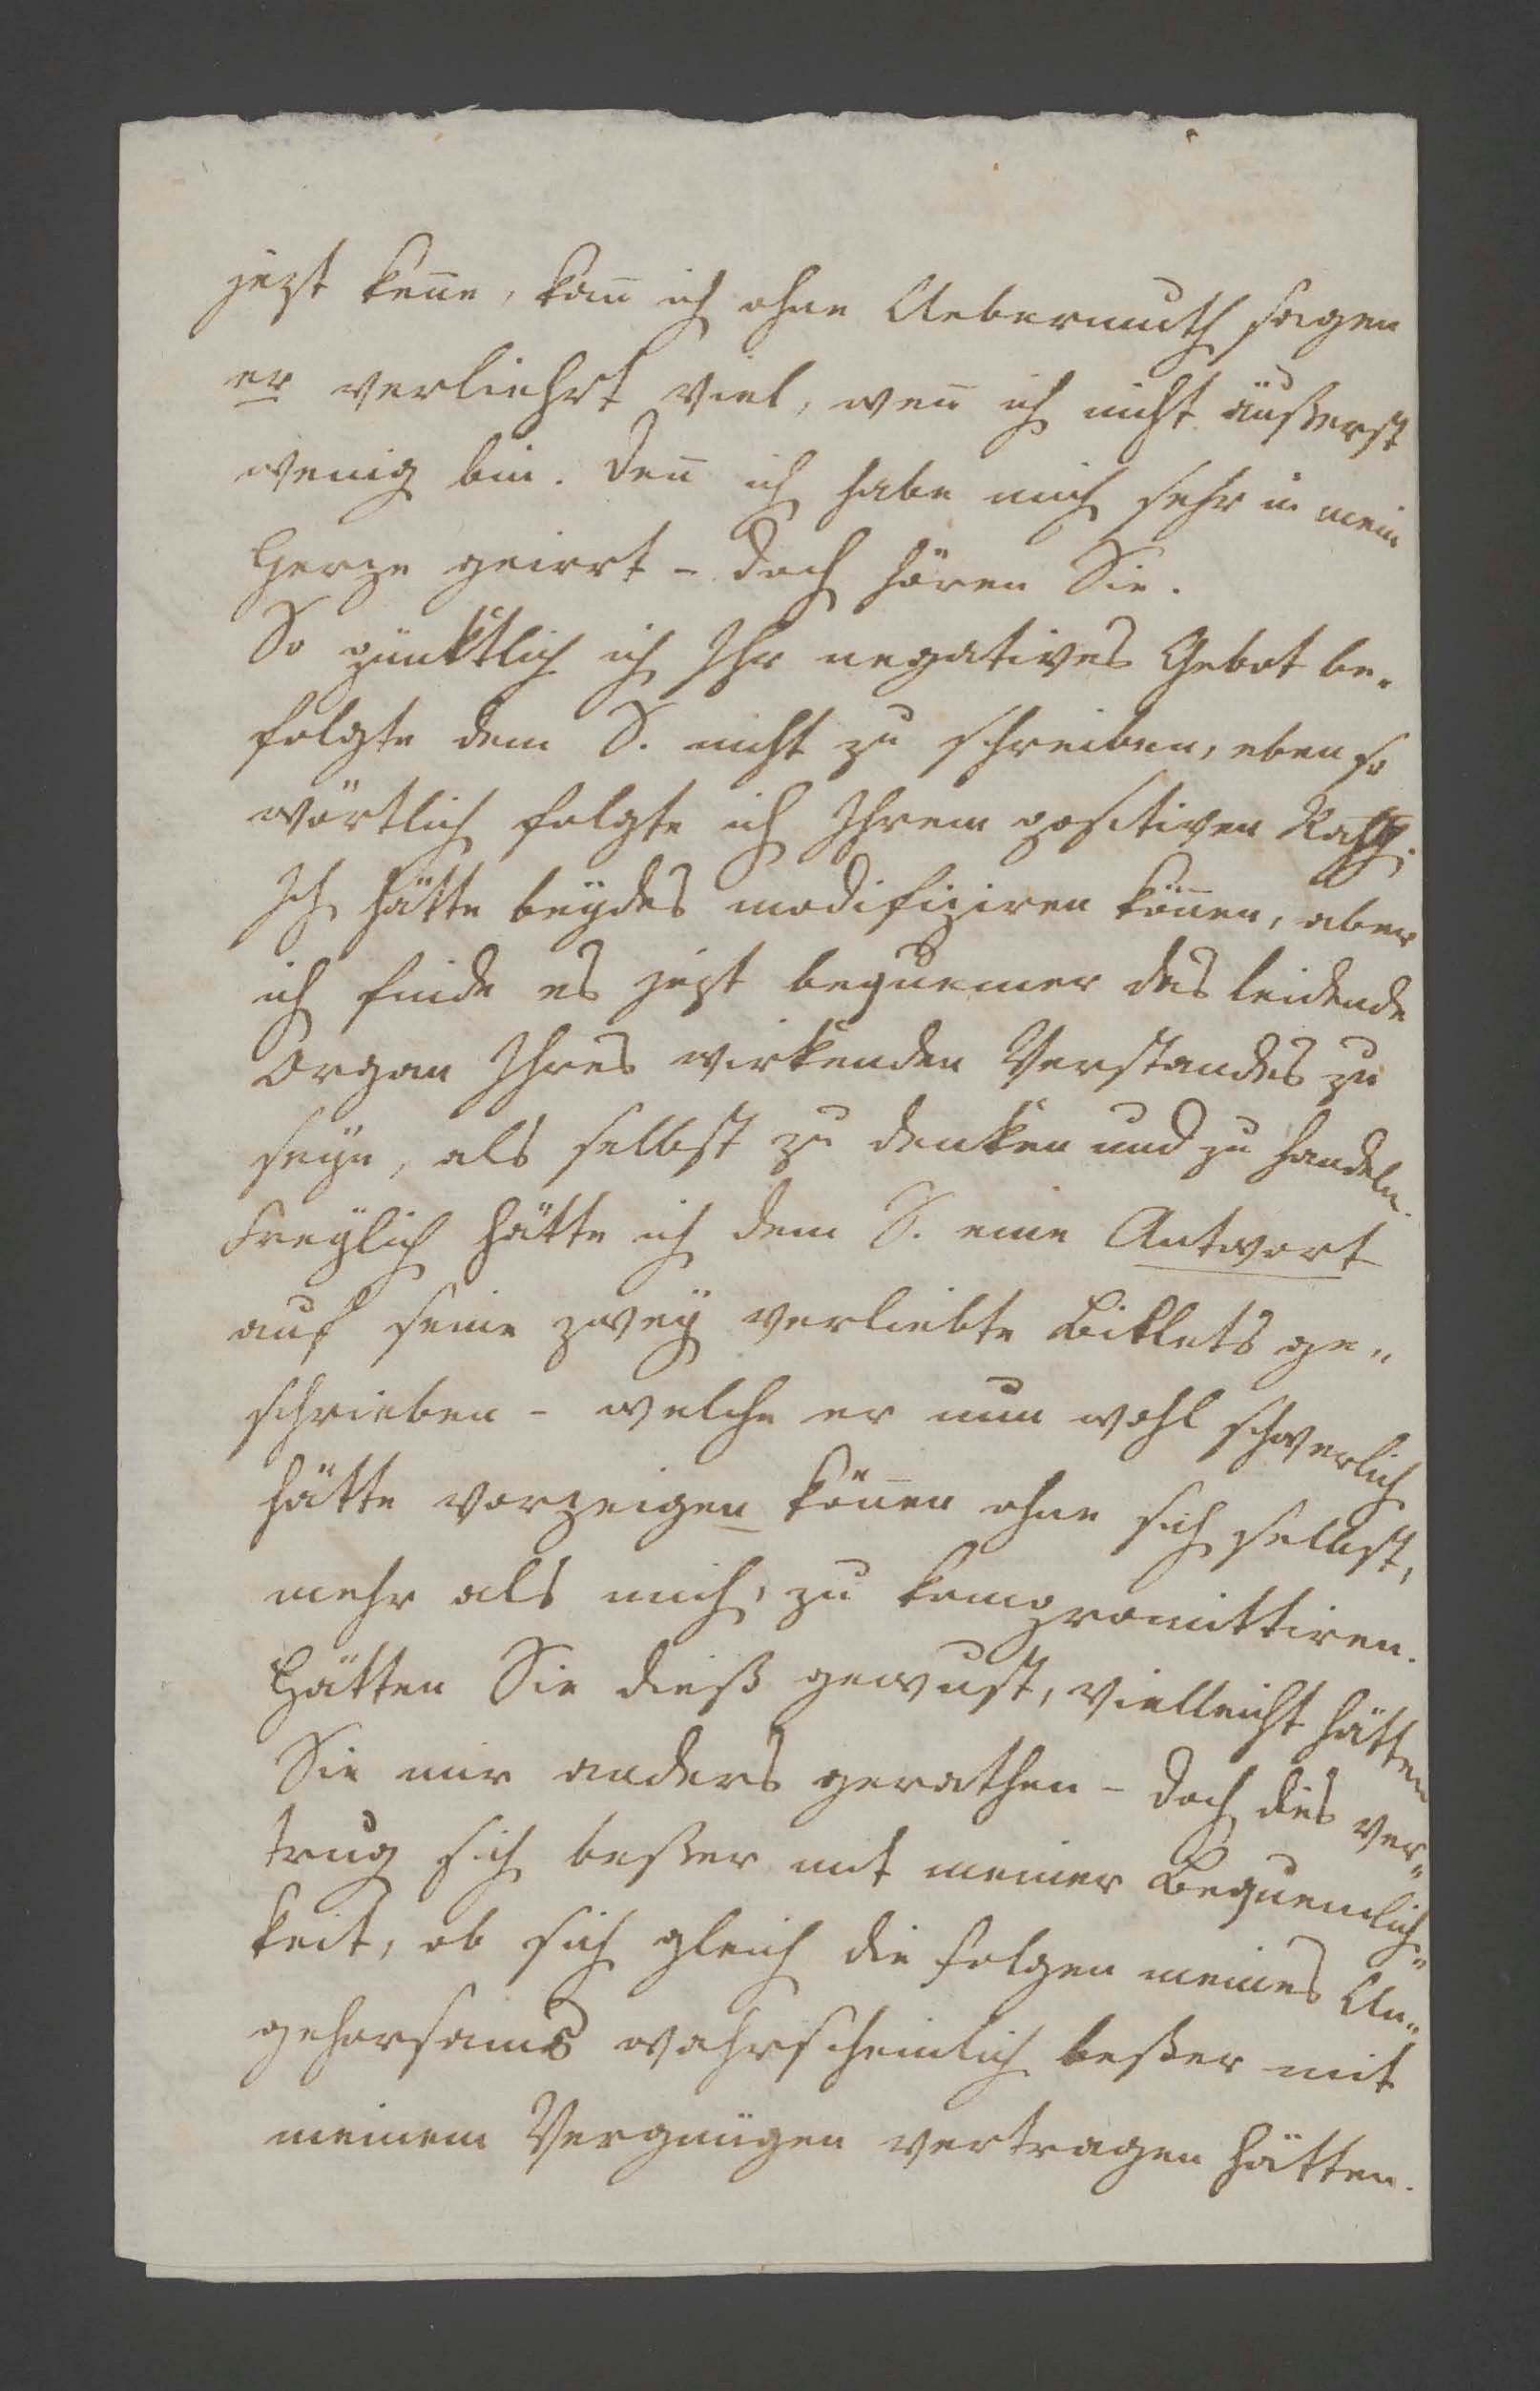 jezt kenne, kann ich ohne Uebermuth sagen
er verliehrt viel, wenn ich nicht äußerst
wenig bin. Denn ich habe mich sehr in mein
Herze geirrt - doch hören Sie.
So pünktlich ich Ihr negatives Gebot be-
folgte dem S. nicht zu schreiben, eben so
wörtlich folgte ich Ihrem positiven Rath.
Ich hätte beydes modifiziren können, aber
ich finde es jezt bequemer das leidende
Organ Ihres wirkenden Verstandes zu
seyn, als selbst zu denken und zu handeln.
Freylich hätte ich dem S. eine Antwort
auf seine zwey verliebte Billets ge-
schrieben - welche er nun wohl schwerlich
hätte vorzeigen können ohne sich selbst,
mehr als mich, zu kompromittiren.
Hätten Sie dieß gewust, vielleicht hätten
Sie mir anders gerathen - doch dies ver-
trug sich beßer mit meiner Bequemlich-
keit, ob sich gleich die Folgen meines Un-
gehorsams wahrscheinlich beßer mit
meinem Vergnügen vertragen hätten.